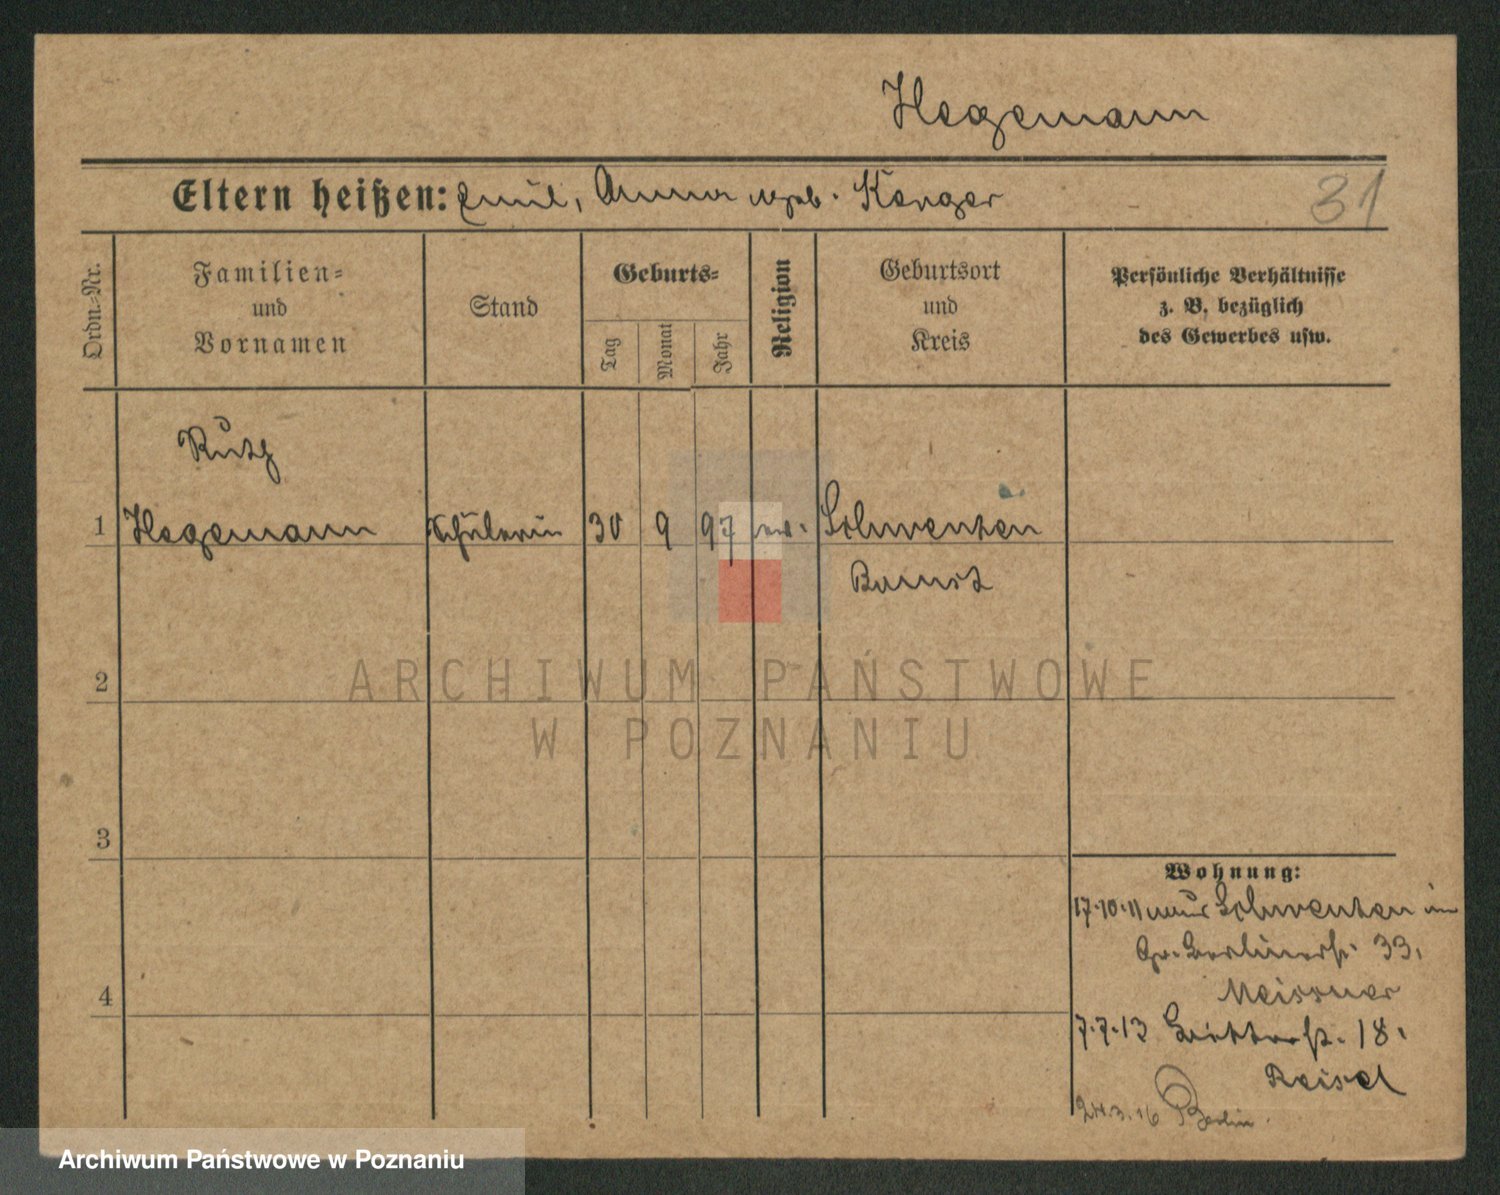 Hegemann
Eltern heißen: Emil, Anna geb. Kenger
31
Ordn.=Nr.
Familien=
und
Vornamen
Stand
Geburts=
Tag
Monat
Jahr
Religion
Geburtsort
und
Kreis
Persönliche Verhältnisse
z. B. bezüglich
des Gewerbes usw.
Ruth
1 Hegemann Schülerin 30 9 97 ev. Schwenten
Bomst
2
3
4
Wohnung:
17.10.11 aus Schwenten in
Gr. Berlinerst. 33.
Meissner
7.7.13 18.
Reisel
24.3.16 Berlin
ARCHIWUM PAŃSTWOWE
W POZNANIU
Archiwum Państwowe w Poznaniu